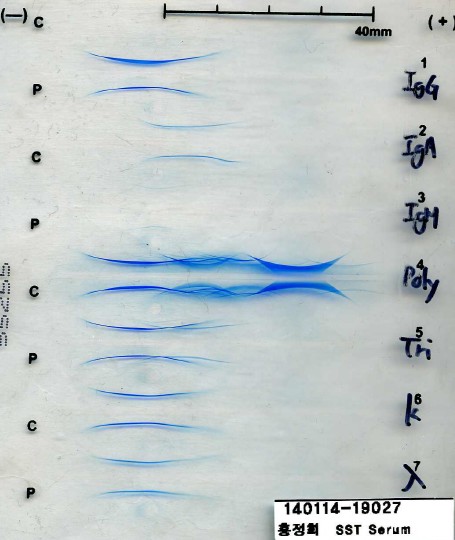 (—) C (+)
40mm
1
IgG
P
2
IgA
C
3
IgM
P
4
Poly
C
5
Tri
P
6
k
C
7
λ
P
140114-19027
홍정희 SST Serum